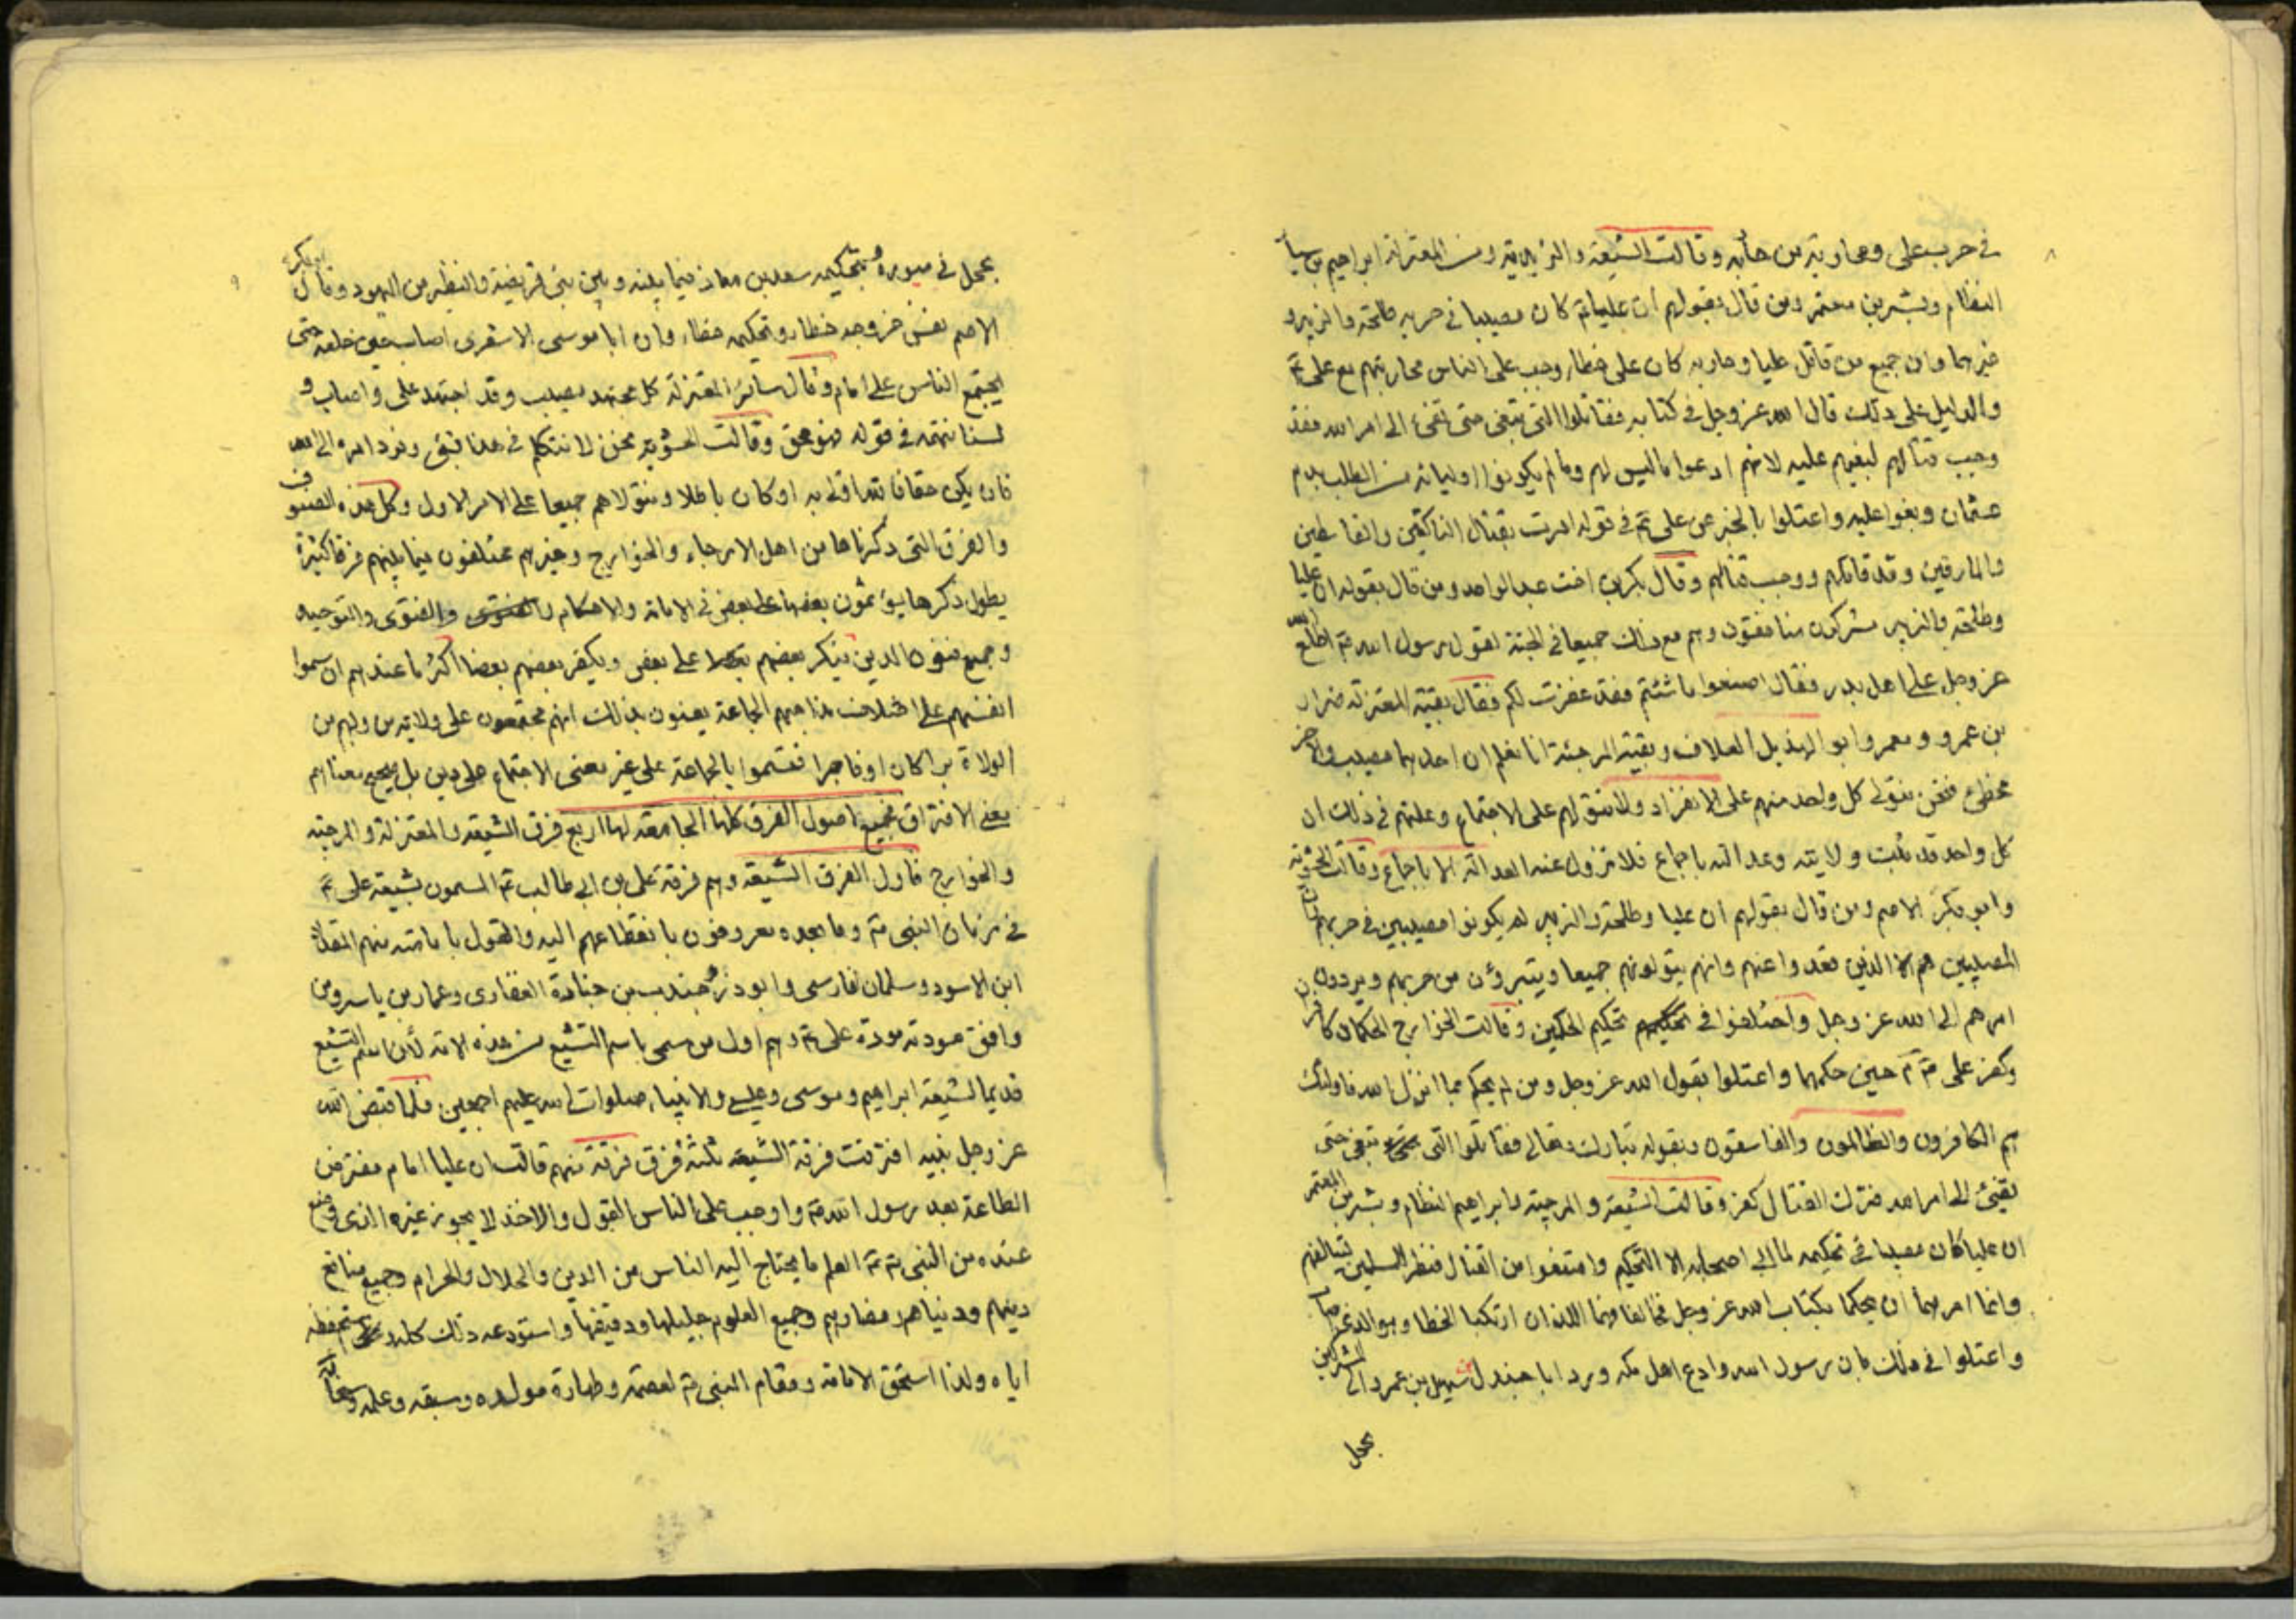 ٨
في حرب علي ومحاربة من حاربه وقالت الشيعة والزيدية ومن المعتزلة ابراهيم بن سيا
النظام وبشر بن معتمر ومن قال بقولهم ان عليا ع كان مصيبا في حربه طلحة والزبير و
غيرهما وان جميع من قاتل عليا وحاربه كان على خطاء وجب على الناس محاربتهم مع علي ع
والدليل على ذلك قال الله عز وجل في كتابه فقاتلوا التي تبغي حتى تفيء الى امر الله فقد
وجب قتالهم لبغيهم عليه لانهم ادعوا ما ليس لهم وما لم يكونوا اوليائه من الطلب بدم
عثمان وبغوا عليه واعتلوا بالخبر عن علي ع في قوله امرت بقتال الناكثين والقاسطين
والمارقين وقد قاتلهم ووجب قتالهم وقال بكر بن اخت عبد الواحد ومن قال بقوله ان عليا
وطلحة والزبير مشركون منافقون وهم مع ذلك جميعا في الجنة لقول رسول الله ص اطلع الله
عز وجل على اهل بدر فقال اصنعوا ما شئتم فقد غفرت لكم فقال بقية المعتزلة ضرار
بن عمرو ومعمر وابو الهذيل العلاف وبقية المرجئة انا نعلم ان احدهما مصيب والاخر
مخطئ فنحن نتولى كل واحد منهم على الانفراد ولا نتولهم على الاجتماع وعلتهم في ذلك ان
كل واحد قد ثبت ولايته وعدالته باجماع فلا تزول عنه العدالة الا باجماع وقالت الحشوية
وابو بكر الاصم ومن قال بقولهم ان عليا وطلحة والزبير لم يكونوا مصيبين في حربهم وان
المصيبين هم الا الذين قعدوا عنهم وانهم يتولونهم جميعا ويتبرؤن من حربهم ويردون
امرهم الى الله عز وجل واختلفوا في تحكيم الحكمين وقالت الخوارج الحكمان كافران
وكفر علي ع حين حكمهما واعتلوا بقول الله عز وجل ومن لم يحكم بما انزل الله فاولئك
هم الكافرون والظالمون والفاسقون وبقوله تبارك وتعالى فقاتلوا التي تبغي حتى
تفيئ الى امر الله فترك القتال كفر وقالت الشيعة والمرجئة وابراهيم النظام وبشر بن المعتمر
ان عليا كان مصيبا في تحكيمه لما ابى اصحابه الا التحكيم وامتنعوا من القتال فنظر للمسلمين ليتالفهم
وانما امرهما ان يحكما بكتاب الله عز وجل فخالفا فهما اللذان ارتكبا الخطا وهو الذي اصاب
واعتلوا في ذلك بان رسول الله وادع اهل مكة ورد ابا جندل سهيل بن عمرو الى المشركين
يحجل
٩
يحجل في قيوده وبتحكيمه سعد بن معاذ فيما بينه وبين بني قريضة والنظير من اليهود وقال ابو بكر
الاصم نفس خروجه خطاء وتحكيمه خطاء وان ابا موسى الاشعري اصاب حين خلعه حتى
يجتمع الناس على امام وقال سائر المعتزلة كل مجتهد مصيب وقد اجتهد علي واصاب و
لسنا نتهمه في قوله فهو محق وقالت الحشوية نحن لا نتكلم في هذا بشئ ونرد امره الى الله
فان يكن حقا فالله اولى به او كان باطلا ونتولاهم جميعا على الامر الاول وكل هذه الصنوف
والفرق التي ذكرناها من اهل الارجاء والخوارج وغيرهم مختلفون فيما بينهم فرقا كثيرة
يطول ذكرها يؤثمون بعضها على بعض في الامامة والاحكام والفتوى والتوحيد
وجميع فنون الدين ينكر بعضهم على بعض ويكفر بعضهم بعضا اكثر ما عندهم ان سموا
انفسهم على اختلاف مذاهبهم الجماعة يعنون بذلك انهم مجتمعون على ولاية من وليهم من
الولاة برا كان او فاجرا فتسموا بالجماعة على غير معنى الاجتماع على دين بل صحيح معناهم
معنى الافتراق فجميع اصول الفرق كلها الجامعة لها اربع فرق الشيعة والمعتزلة والمرجئة
والخوارج فاول الفرق الشيعة وهم فرقة علي بن ابي طالب ع المسمون بشيعة علي ع
في زمان النبي ص وما بعده معروفون بانقطاعهم اليه والقول بامامته منهم المقداد
ابن الاسود وسلمان الفارسي وابو ذر جندب بن جنادة الغفاري وعمار بن ياسر ومن
وافق مودته مودة علي ع وهم اول من سمى باسم التشيع من هذه الامة لأن اسم التشيع
قديما لشيعة ابراهيم وموسى وعيسى والانبياء صلوات الله عليهم اجمعين فلما قبض الله
عز وجل نبيه افترقت فرقة الشيعة ثلثة فرق فرقة منهم قالت ان عليا امام مفترض
الطاعة بعد رسول الله ص واوجب على الناس القبول والاخذ لا يجوز غيره الذي وضع
عنده من النبي ص ع العلم ما يحتاج اليه الناس من الدين والحلال والحرام وجميع منافع
دينهم ودنياهم ومضارهم وجميع العلوم جليلها ودقيقها واستودعه ذلك كله واستحفظه
اياه ولذا استحق الامامة ومقام النبي ص لعصمته وطهارة مولده وسبقه وعلمه وسخائه